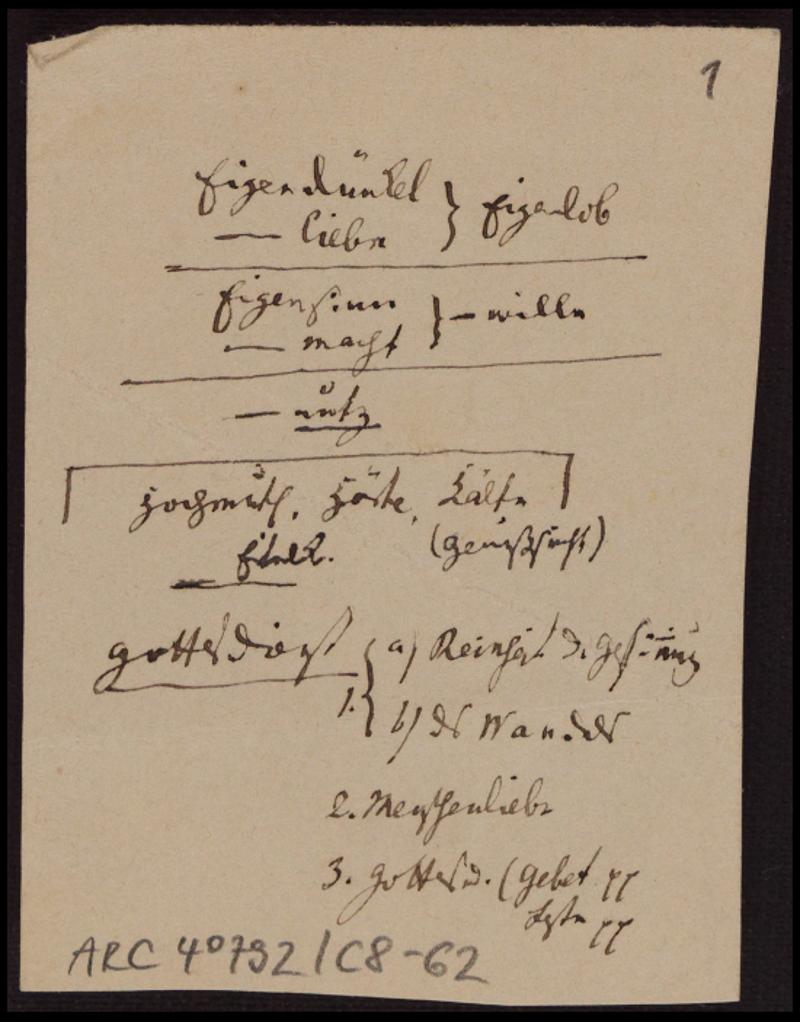 1
Eigendünkel } Eigenlob
— liebe
Eigensinn } — wille
— macht
— nutz
Hochmuth, Härte, Kälte
Eitelk. (Genußsucht)
Gottesdienst { a) Reinheit d. Gesinnung
1. { b) des Wandels
2. Menschenliebe
3. Gottesd. (Gebet pp
Feste pp
ARC 4°792/C8-62